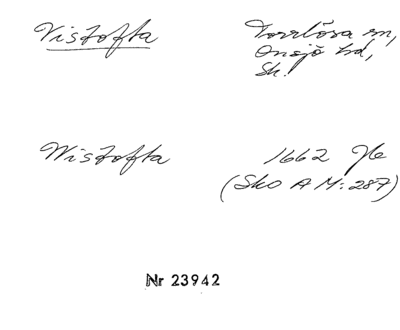 Vistofta
Torrlösa sn,
Onsjö hd,
Sk.
Wistofta
1662 Jb
(Sko A M: 287)
Nr 23942